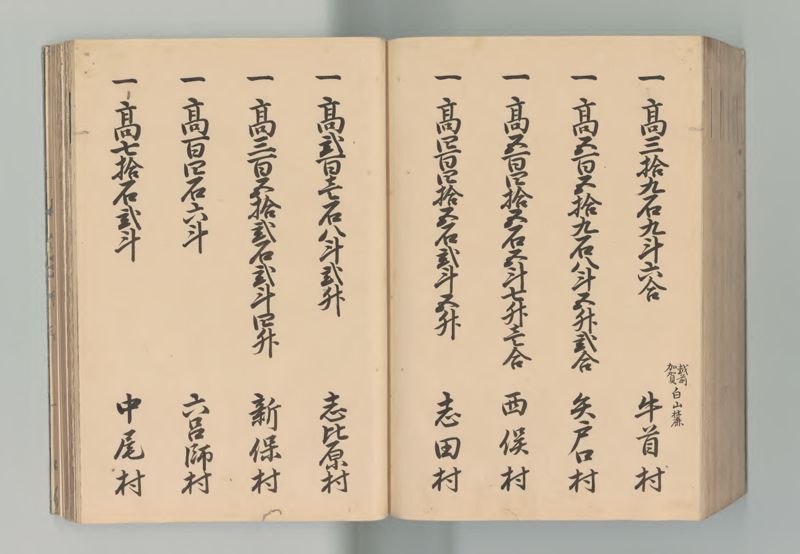 一 高三拾九石九斗六合
越前
加賀 白山麓
牛首村
一 高五百五拾九石八斗五升弐合 矢戸口村
一 高五百四拾五石五斗七升壱合 西俣村
一 高四百四拾五石弐斗五升 志田村
一 高弐百壱石八斗弐升 志比原村
一 高三百五拾弐石弐斗四升 新保村
一 高百四石六斗 六呂師村
一 高七拾石弐斗 中尾村